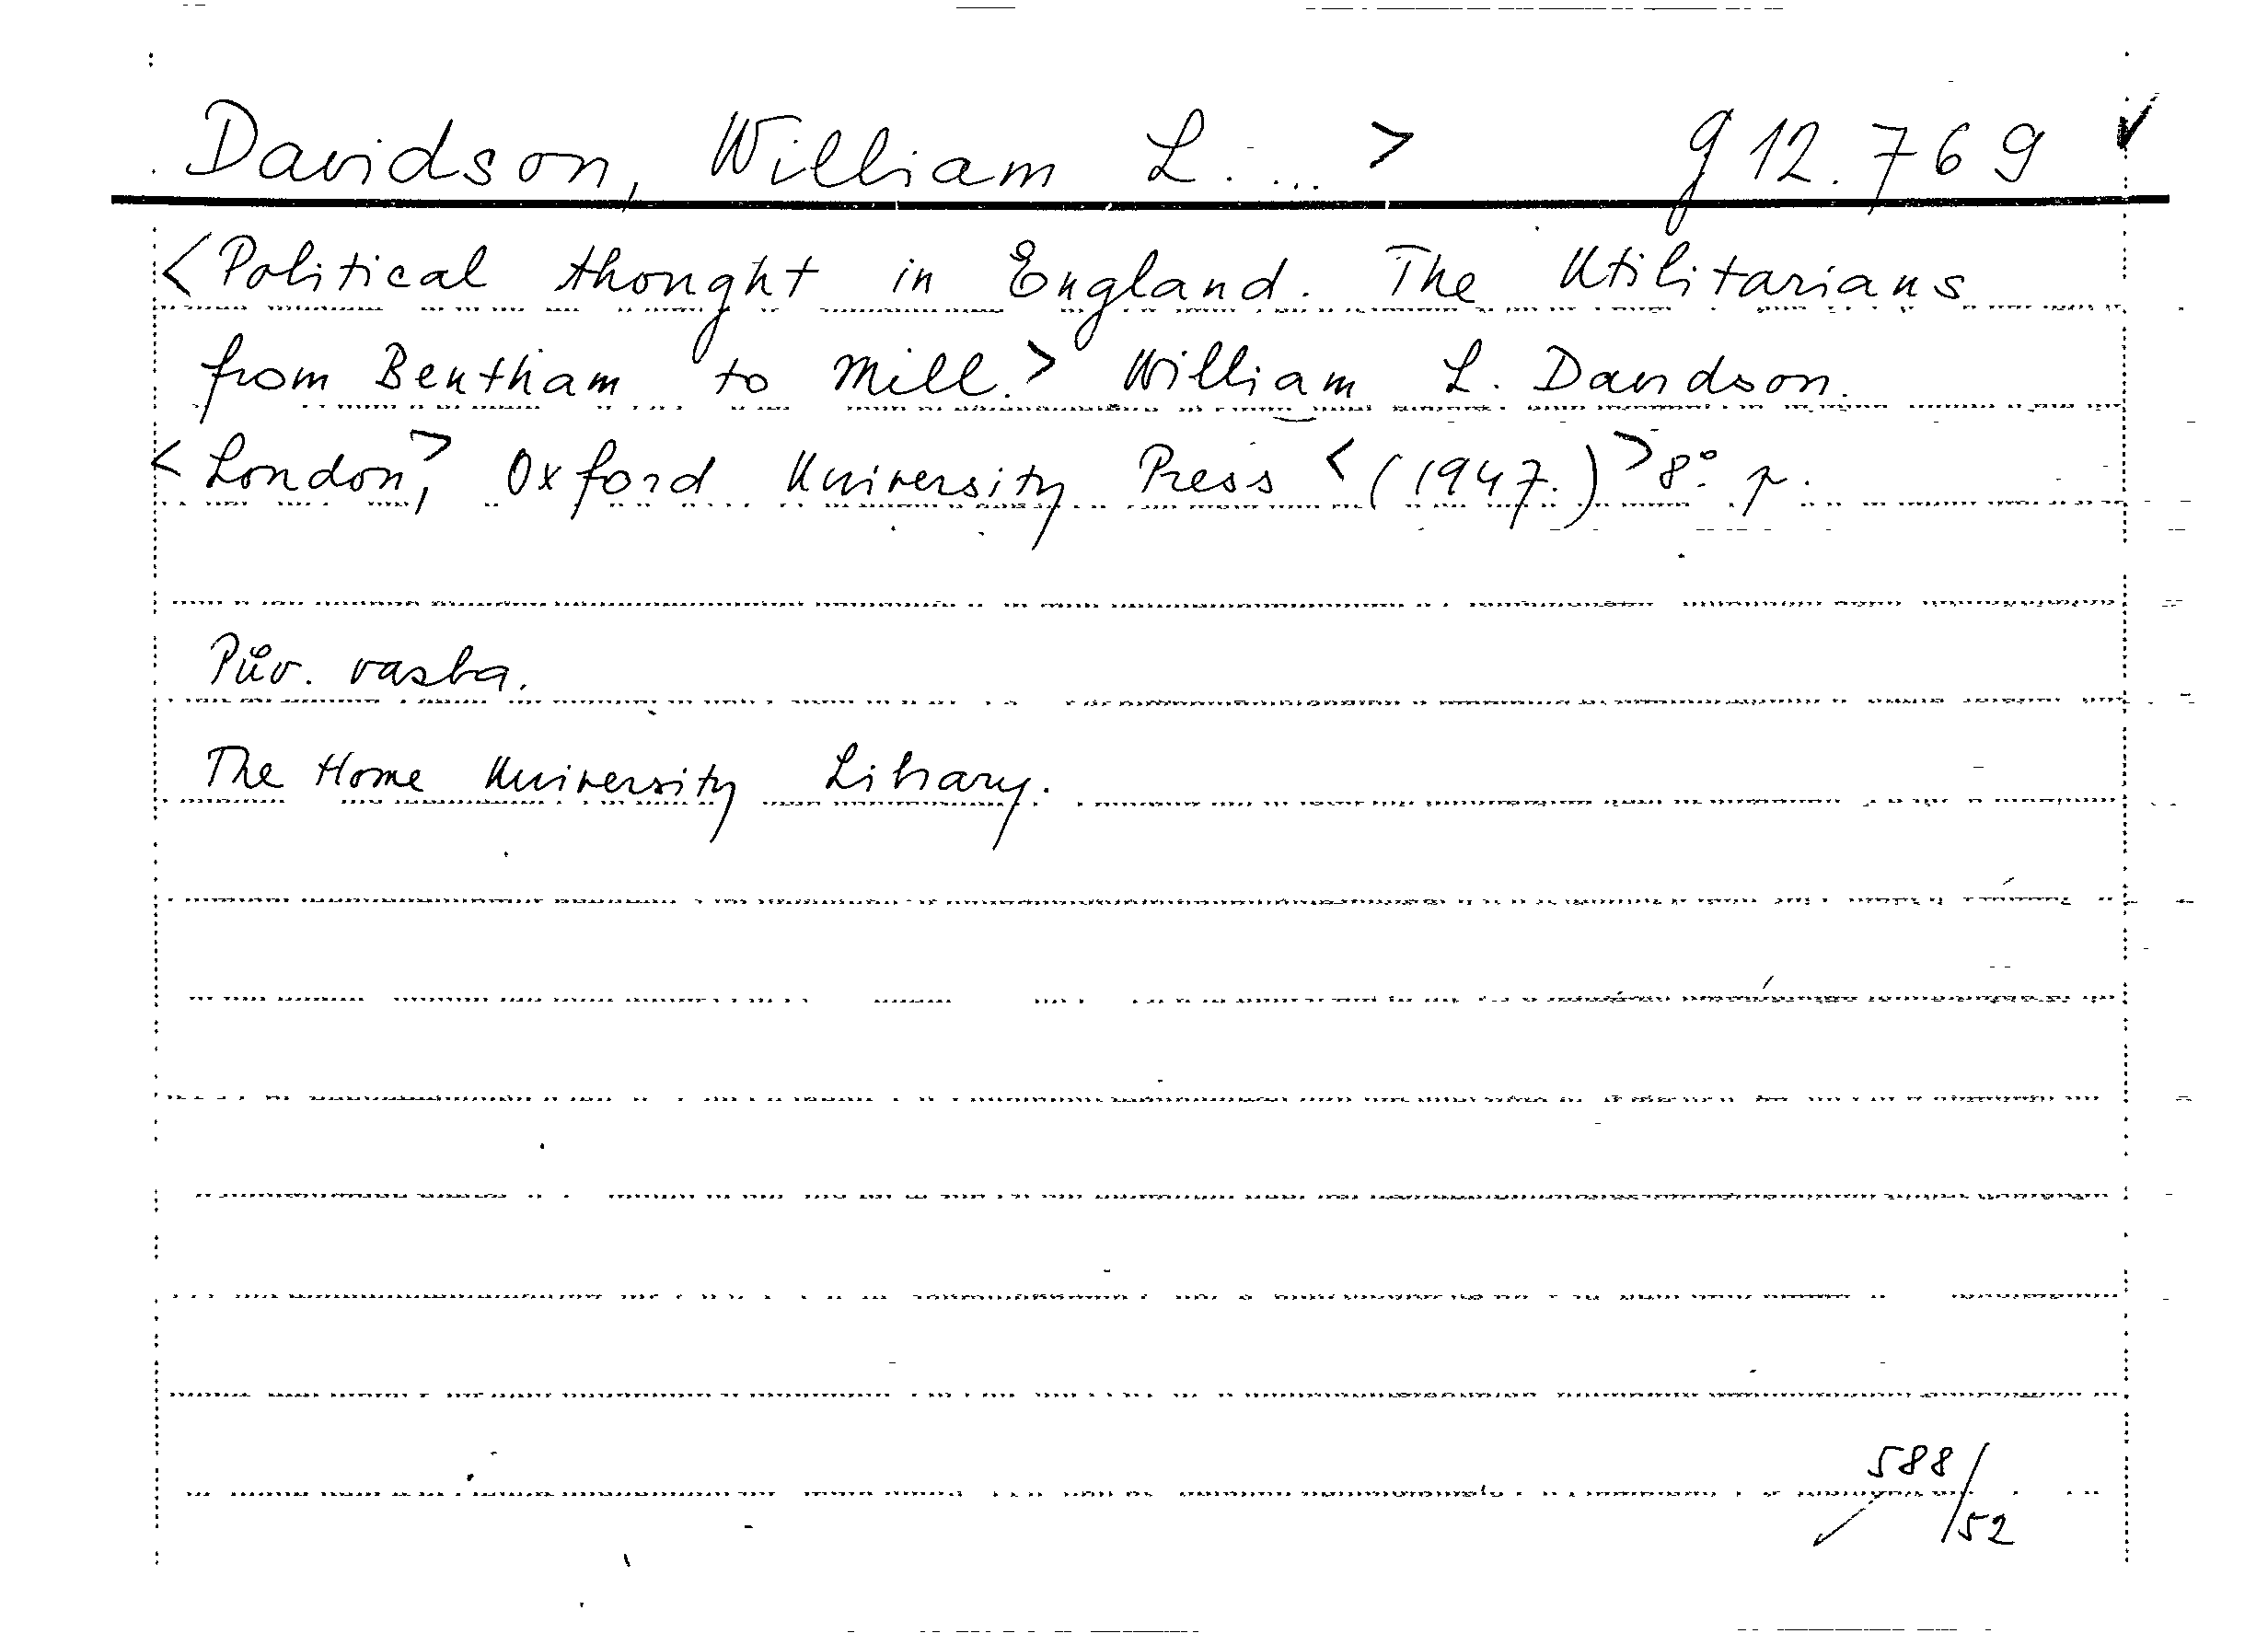 Davidson, William L. ... > g 12.769
<Political thought in England. The Utilitarians
from Bentham to Mill.> William L. Davidson.
<London,> Oxford University Press <(1947.)> 8° p.
Pův. vazba.
The Home University Library.
588/52